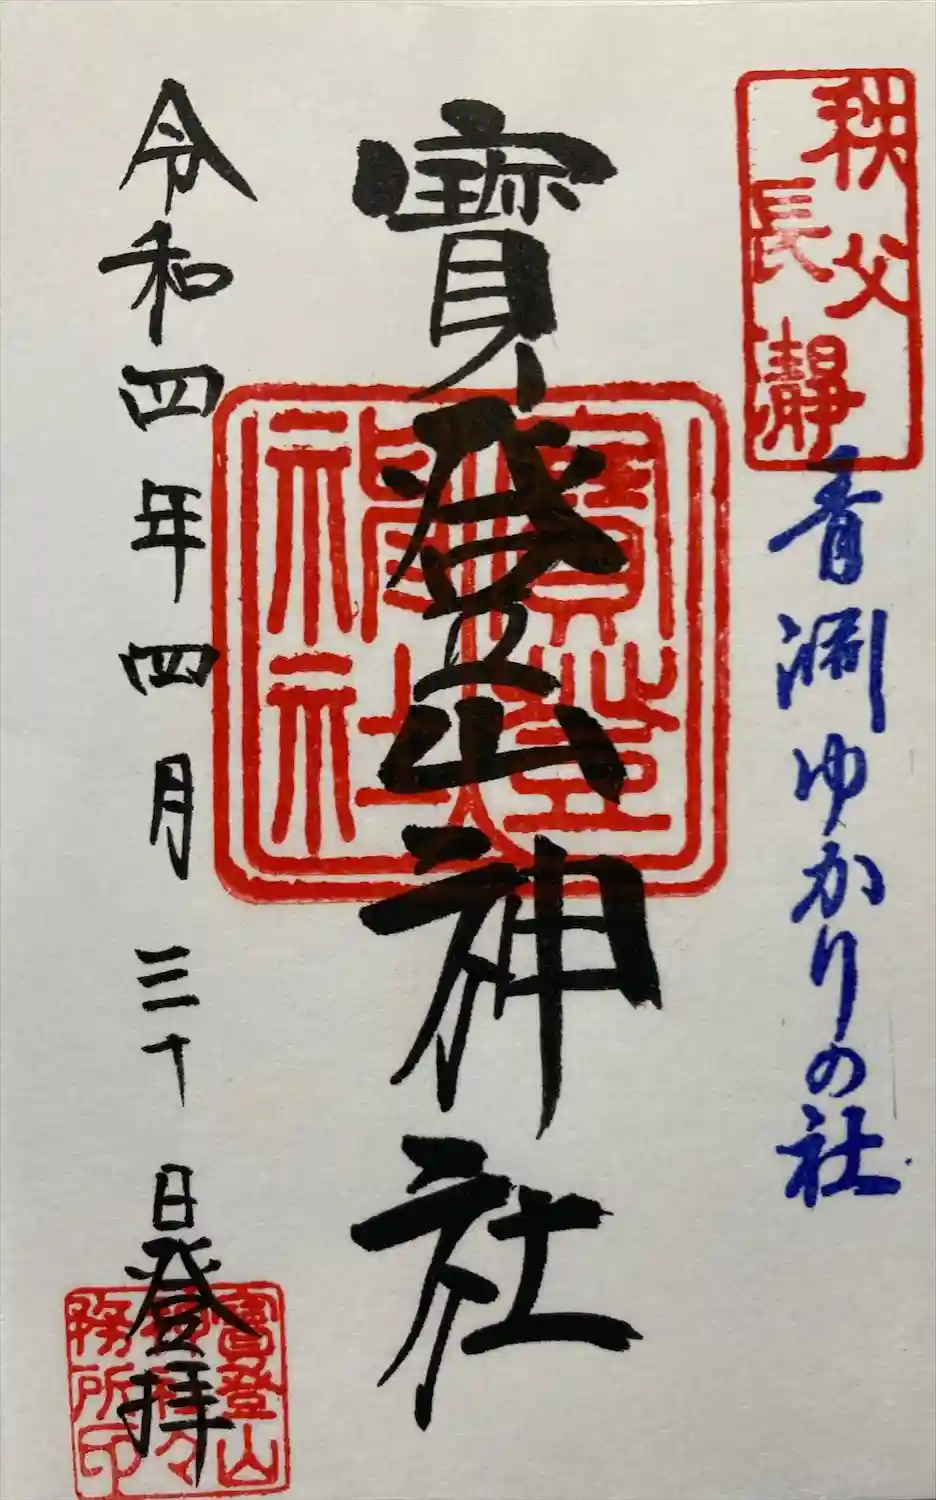 秩父
長瀞
青淵ゆかりの社
寶登山神社
寶登
神社
令和四年四月三十日登拝
寶登山
神社々
務所印